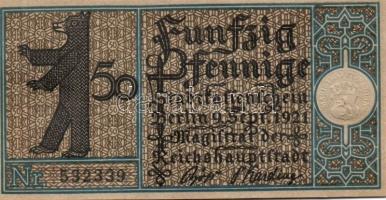 50
Funfzig
Pfennige
Berlin 9. Sept. 1921
Magistrat der
Reichshauptstadt
Nr. 532339